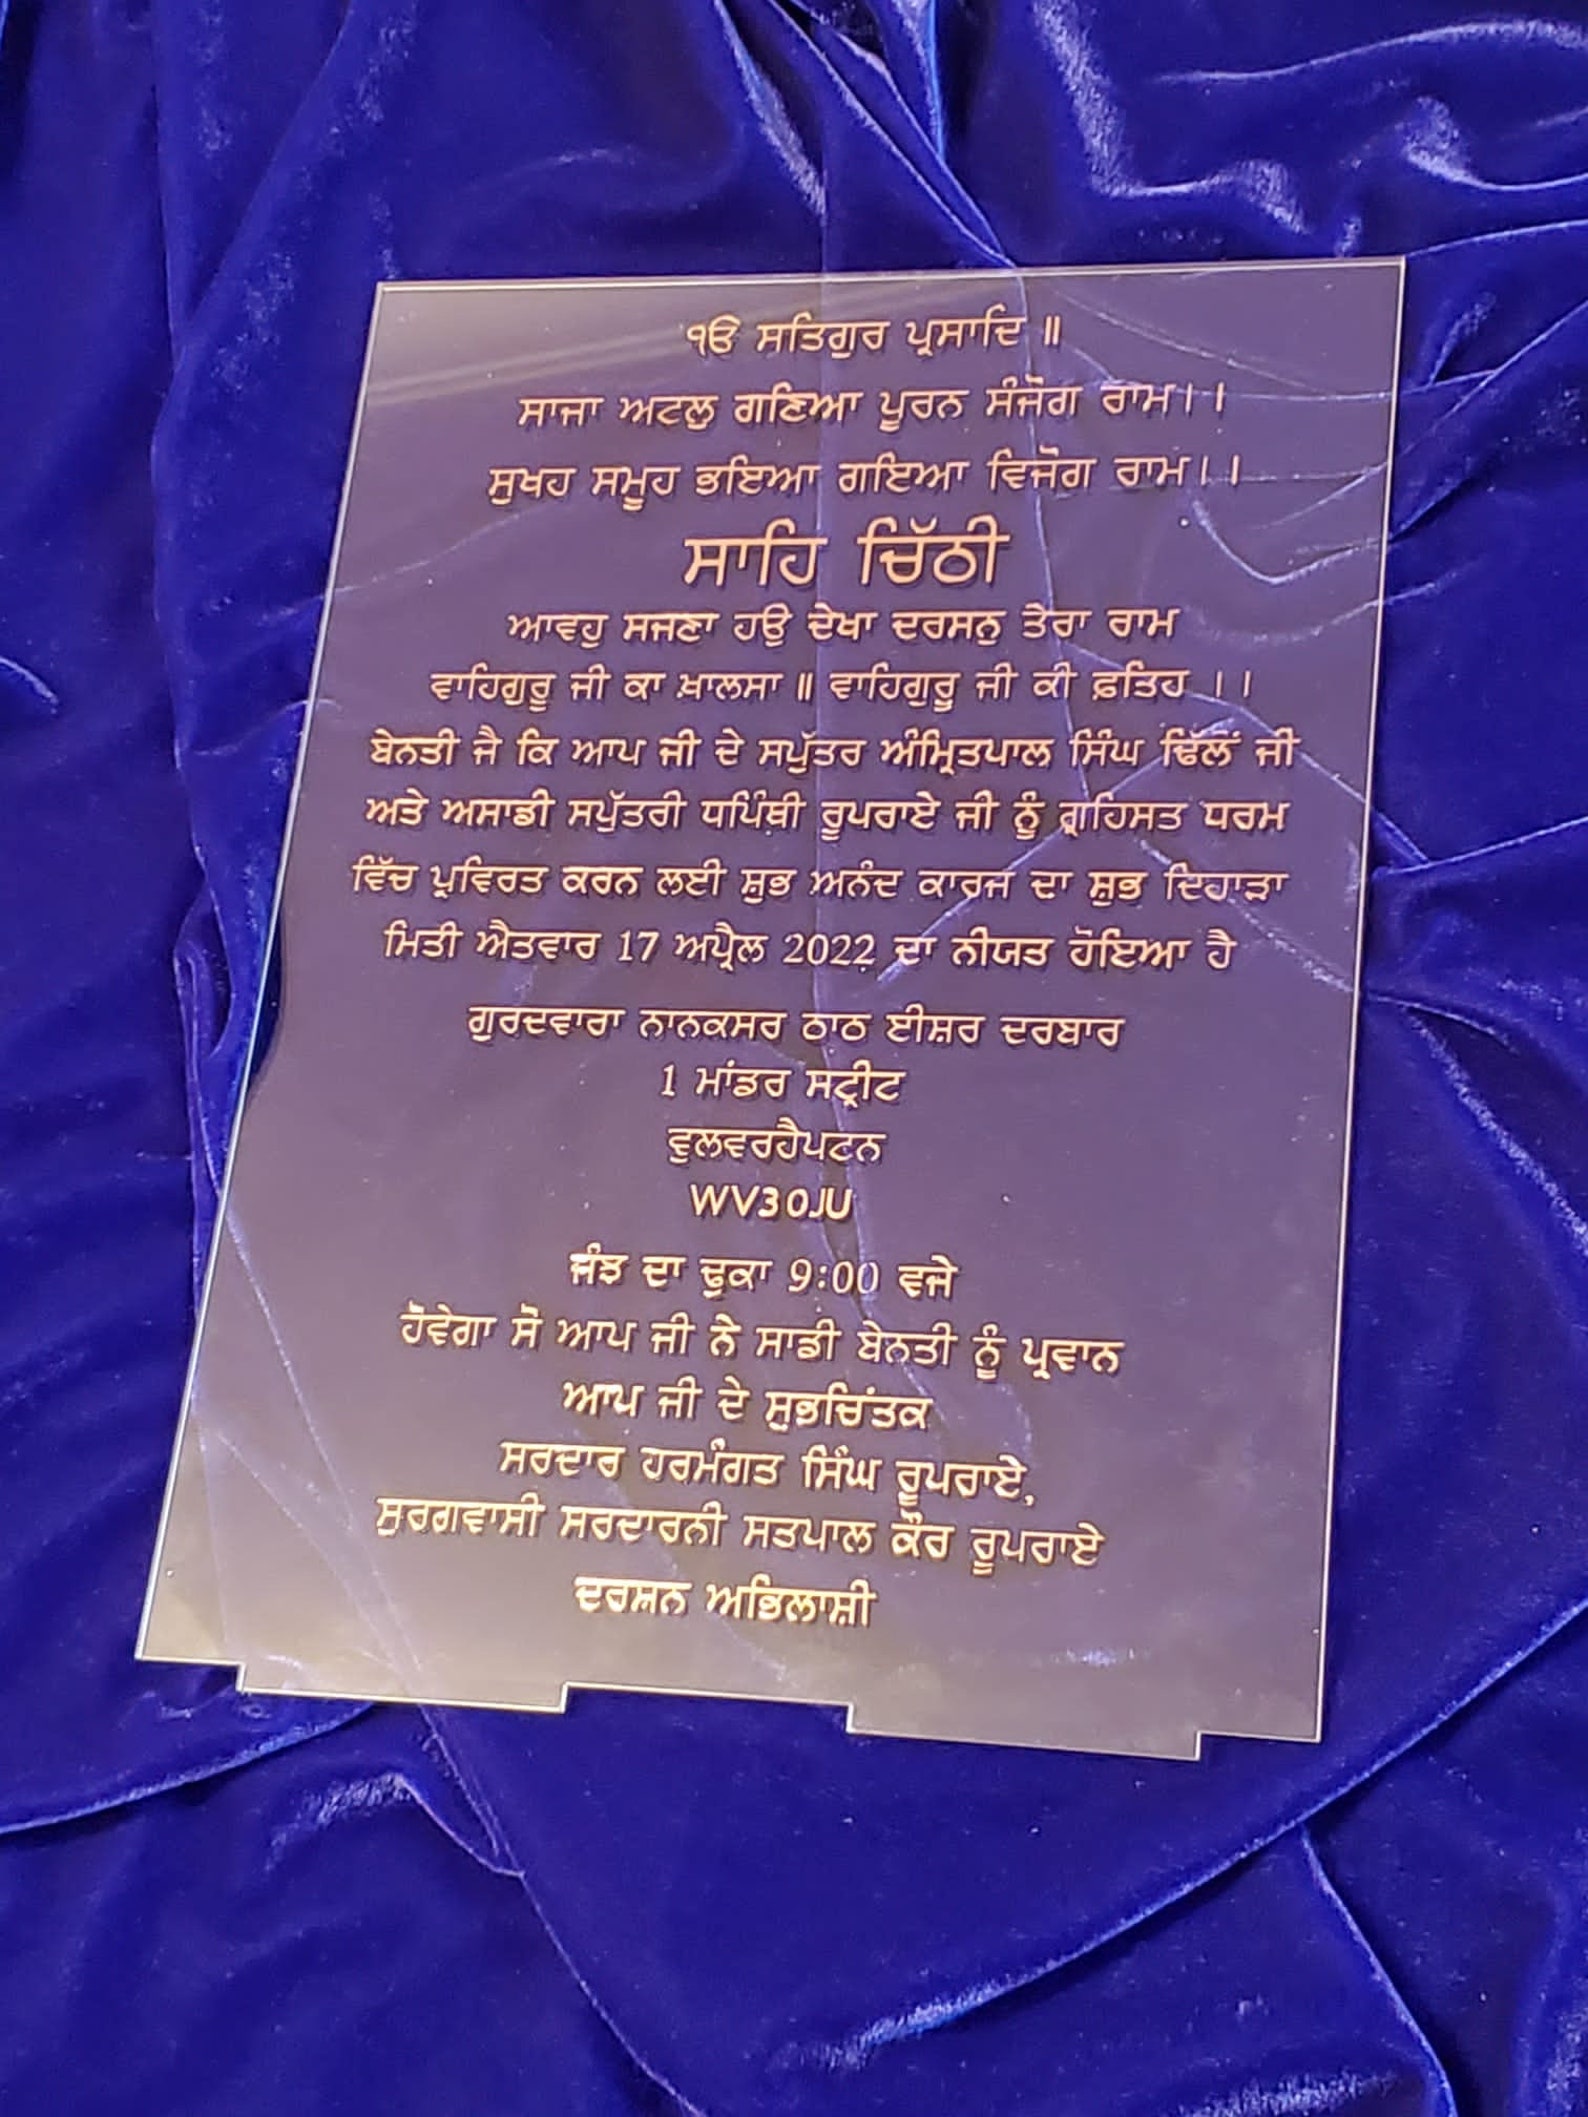 ੴ ਸਤਿਗੁਰ ਪ੍ਰਸਾਦਿ ॥
ਸਾਜਾ ਅਟਲੁ ਗਣਿਆ ਪੂਰਨ ਸੰਜੋਗ ਰਾਮ।।
ਸੁਖਹ ਸਮੂਹ ਭਇਆ ਗਇਆ ਵਿਜੋਗ ਰਾਮ।।
ਸਾਹਿ ਚਿੱਠੀ
ਆਵਹੁ ਸਜਣਾ ਹਉ ਦੇਖਾ ਦਰਸਨੁ ਤੇਰਾ ਰਾਮ
ਵਾਹਿਗੁਰੂ ਜੀ ਕਾ ਖ਼ਾਲਸਾ ॥ ਵਾਹਿਗੁਰੂ ਜੀ ਕੀ ਫ਼ਤਿਹ ।।
ਬੇਨਤੀ ਜੈ ਕਿ ਆਪ ਜੀ ਦੇ ਸਪੁੱਤਰ ਅੰਮ੍ਰਿਤਪਾਲ ਸਿੰਘ ਢਿੱਲੋਂ ਜੀ
ਅਤੇ ਅਸਾਡੀ ਸਪੁੱਤਰੀ ਧਪਿੰਥੀ ਰੂਪਰਾਏ ਜੀ ਨੂੰ ਗ੍ਰਹਿਸਤ ਧਰਮ
ਵਿੱਚ ਪ੍ਰਵਿਰਤ ਕਰਨ ਲਈ ਸ਼ੁਭ ਅਨੰਦ ਕਾਰਜ ਦਾ ਸ਼ੁਭ ਦਿਹਾੜਾ
ਮਿਤੀ ਐਤਵਾਰ 17 ਅਪ੍ਰੈਲ 2022 ਦਾ ਨੀਯਤ ਹੋਇਆ ਹੈ
ਗੁਰਦਵਾਰਾ ਨਾਨਕਸਰ ਠਾਠ ਈਸ਼ਰ ਦਰਬਾਰ
1 ਮਾਂਡਰ ਸਟ੍ਰੀਟ
ਵੁਲਵਰਹੈਪਟਨ
WV3 0JU
ਜੰਝ ਦਾ ਢੁਕਾ 9:00 ਵਜੇ
ਹੋਵੇਗਾ ਸੋ ਆਪ ਜੀ ਨੇ ਸਾਡੀ ਬੇਨਤੀ ਨੂੰ ਪ੍ਰਵਾਨ
ਆਪ ਜੀ ਦੇ ਸ਼ੁਭਚਿੰਤਕ
ਸਰਦਾਰ ਹਰਮੰਗਤ ਸਿੰਘ ਰੂਪਰਾਏ,
ਸੁਰਗਵਾਸੀ ਸਰਦਾਰਨੀ ਸਤਪਾਲ ਕੌਰ ਰੂਪਰਾਏ
ਦਰਸ਼ਨ ਅਭਿਲਾਸ਼ੀ